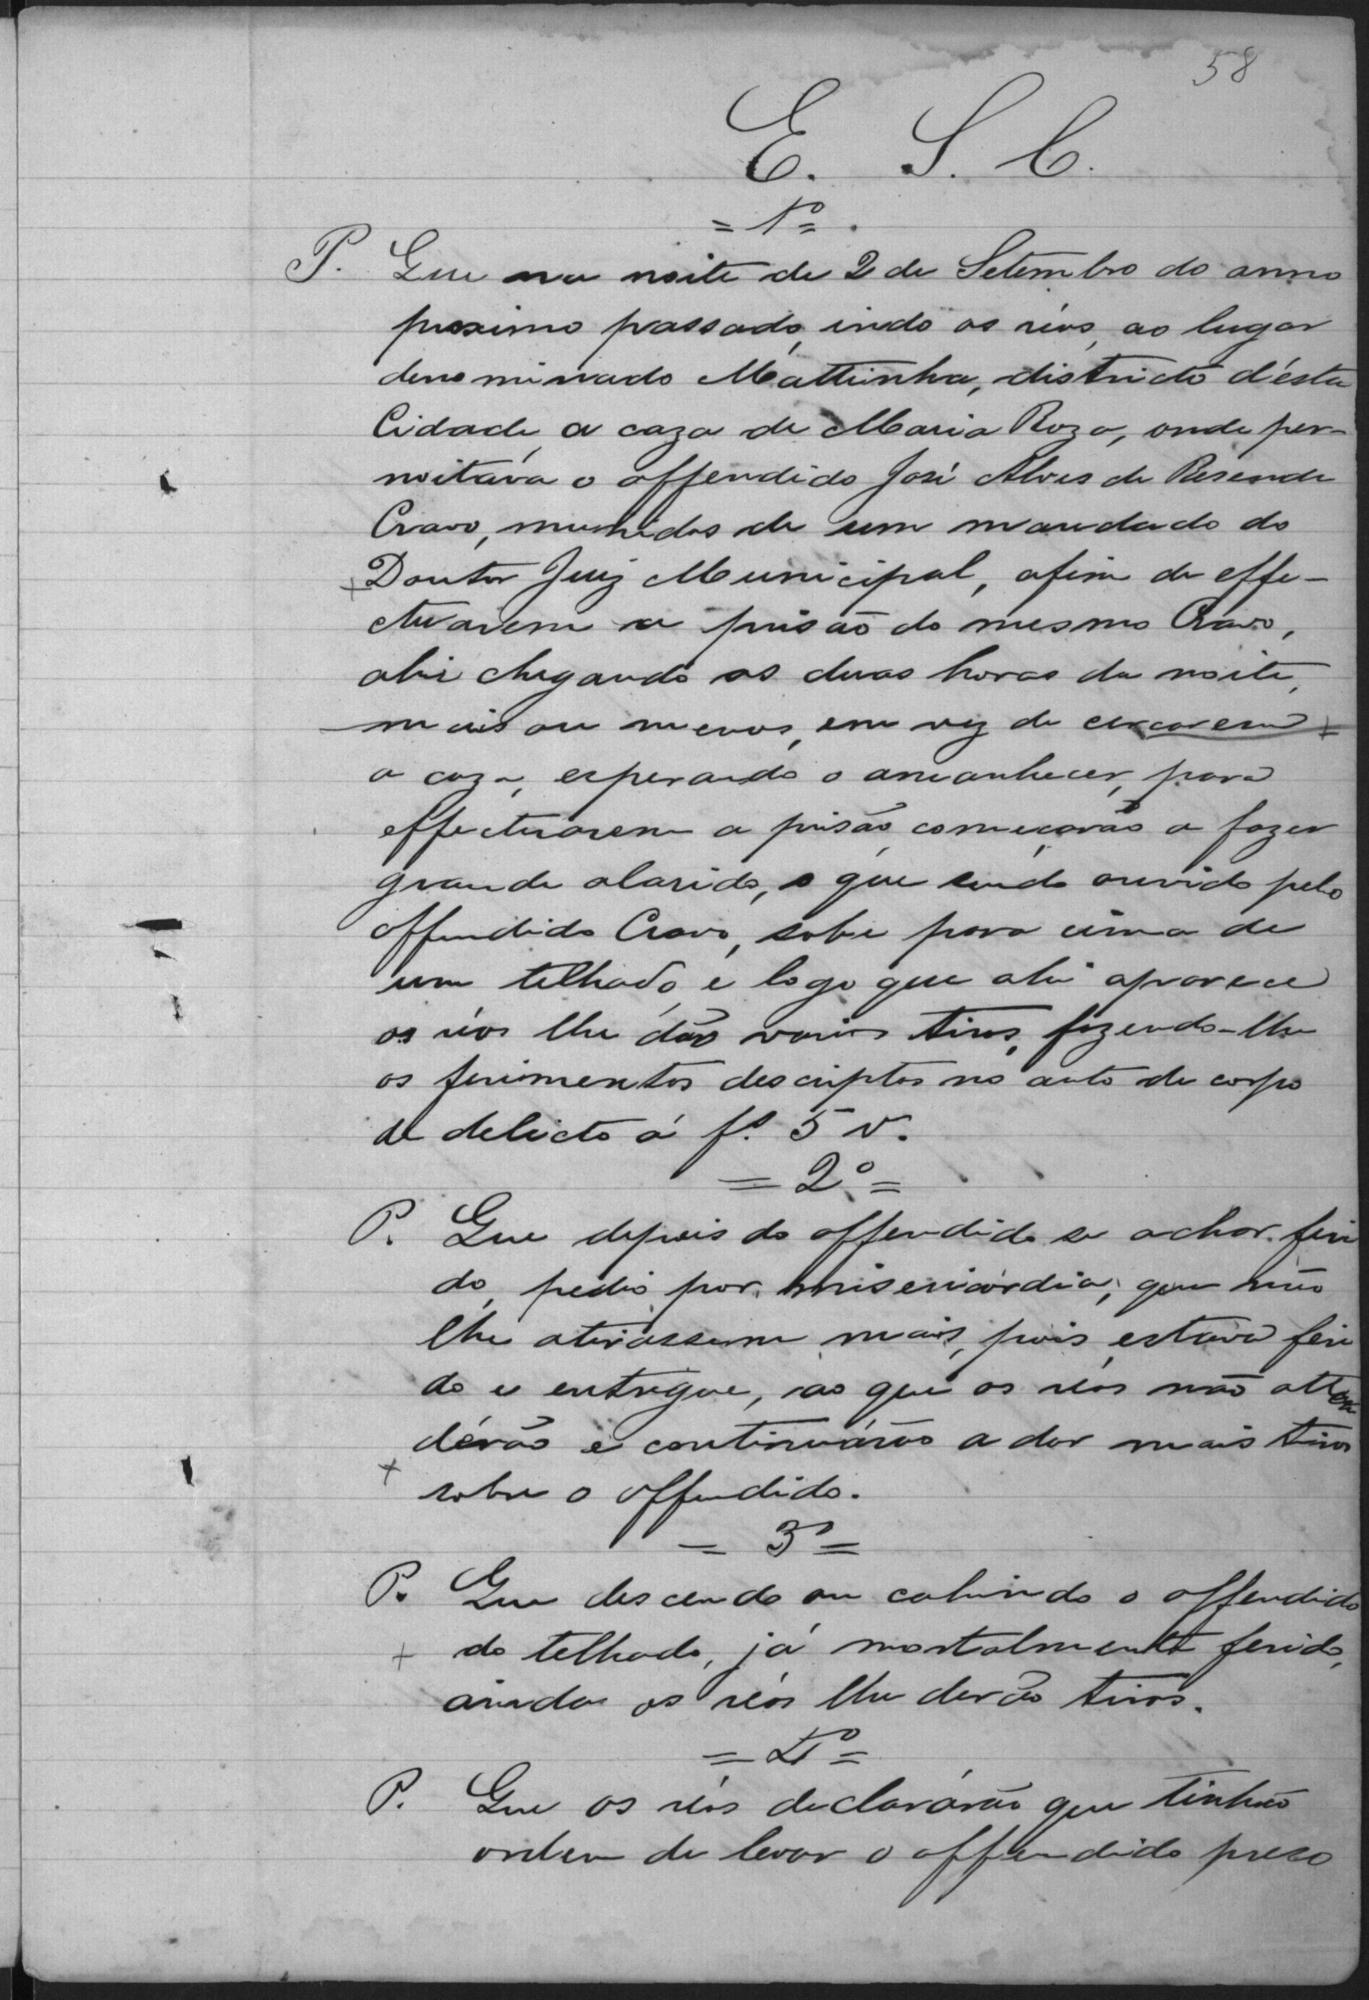 58
E. S. C.
= 1º =
P. Que na noite de 2 de Setembro do anno
proximo passado, indo os réos, ao lugar
denominado Mattinha, districto d'ésta
Cidade, a caza de Maria Roza, onde per-
noitáva o offendido José Alves de Resende
Cravo, munidos de um mandado do
Doutor Juiz Municipal, afim de effe-
ctuarem a prisão do mesmo Cravo,
ahi chegando as duas horas da noite,
mais ou menos, em vez de cercarem
a caza, esperando o amanhecer, para
effectuarem a prisão, começarão a fazer
grande alarido, o que sendo ouvido pelo
offendido Cravo, sobe para cima de
um telhado, e logo que ahi aparece
os réos lhe dão varios tiros, fazendo-lhe
os ferimentos descriptos no auto de corpo
de delicto á fs. 5 v.
= 2º =
P. Que depois do offendido se achar feri
do, pedio por misericórdia, que não
lhe atirassem mais, pois estava feri
do e entregue, ao que os réos não atten
dérão e continuárão a dar mais tiros
sobre o offendido.
= 3º =
P. Que descendo ou cahindo o offendido
do telhado, já mortalmente ferido,
ainda os réos lhe derão tiros.
= 4º =
P. Que os réos declarárão que tinhão
ordem de levar o offendido preso